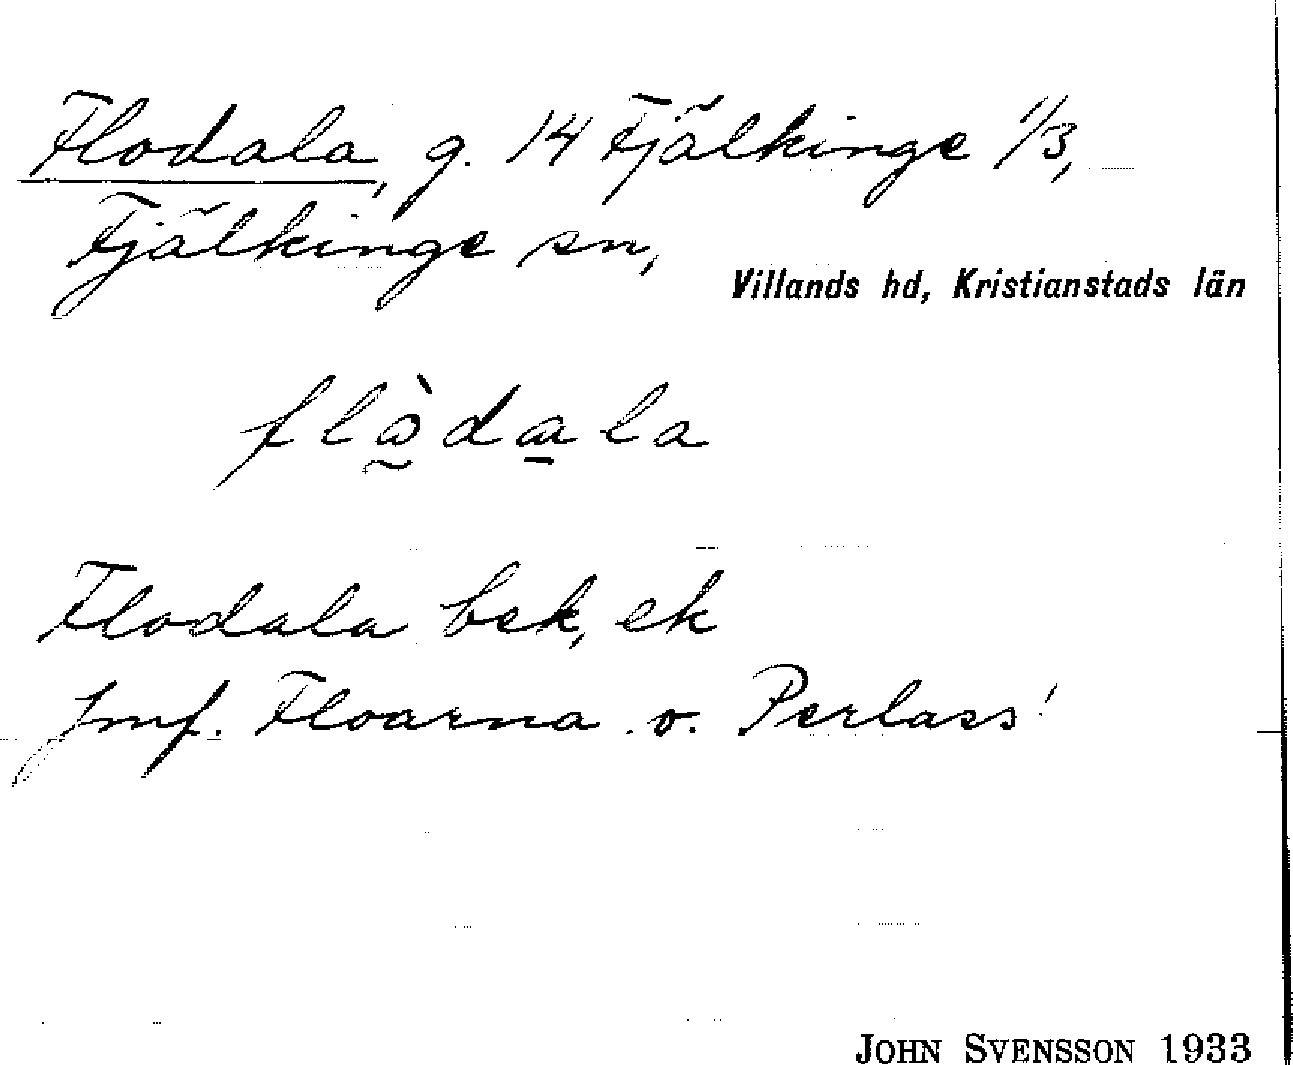 Flodala, g. 14 Fjälkinge 1/3,
Fjälkinge sn,
Villands hd, Kristianstads län
flòdala
Flodala bek, ek
Jmf. Floarna o. Perlass!
JOHN SVENSSON 1933